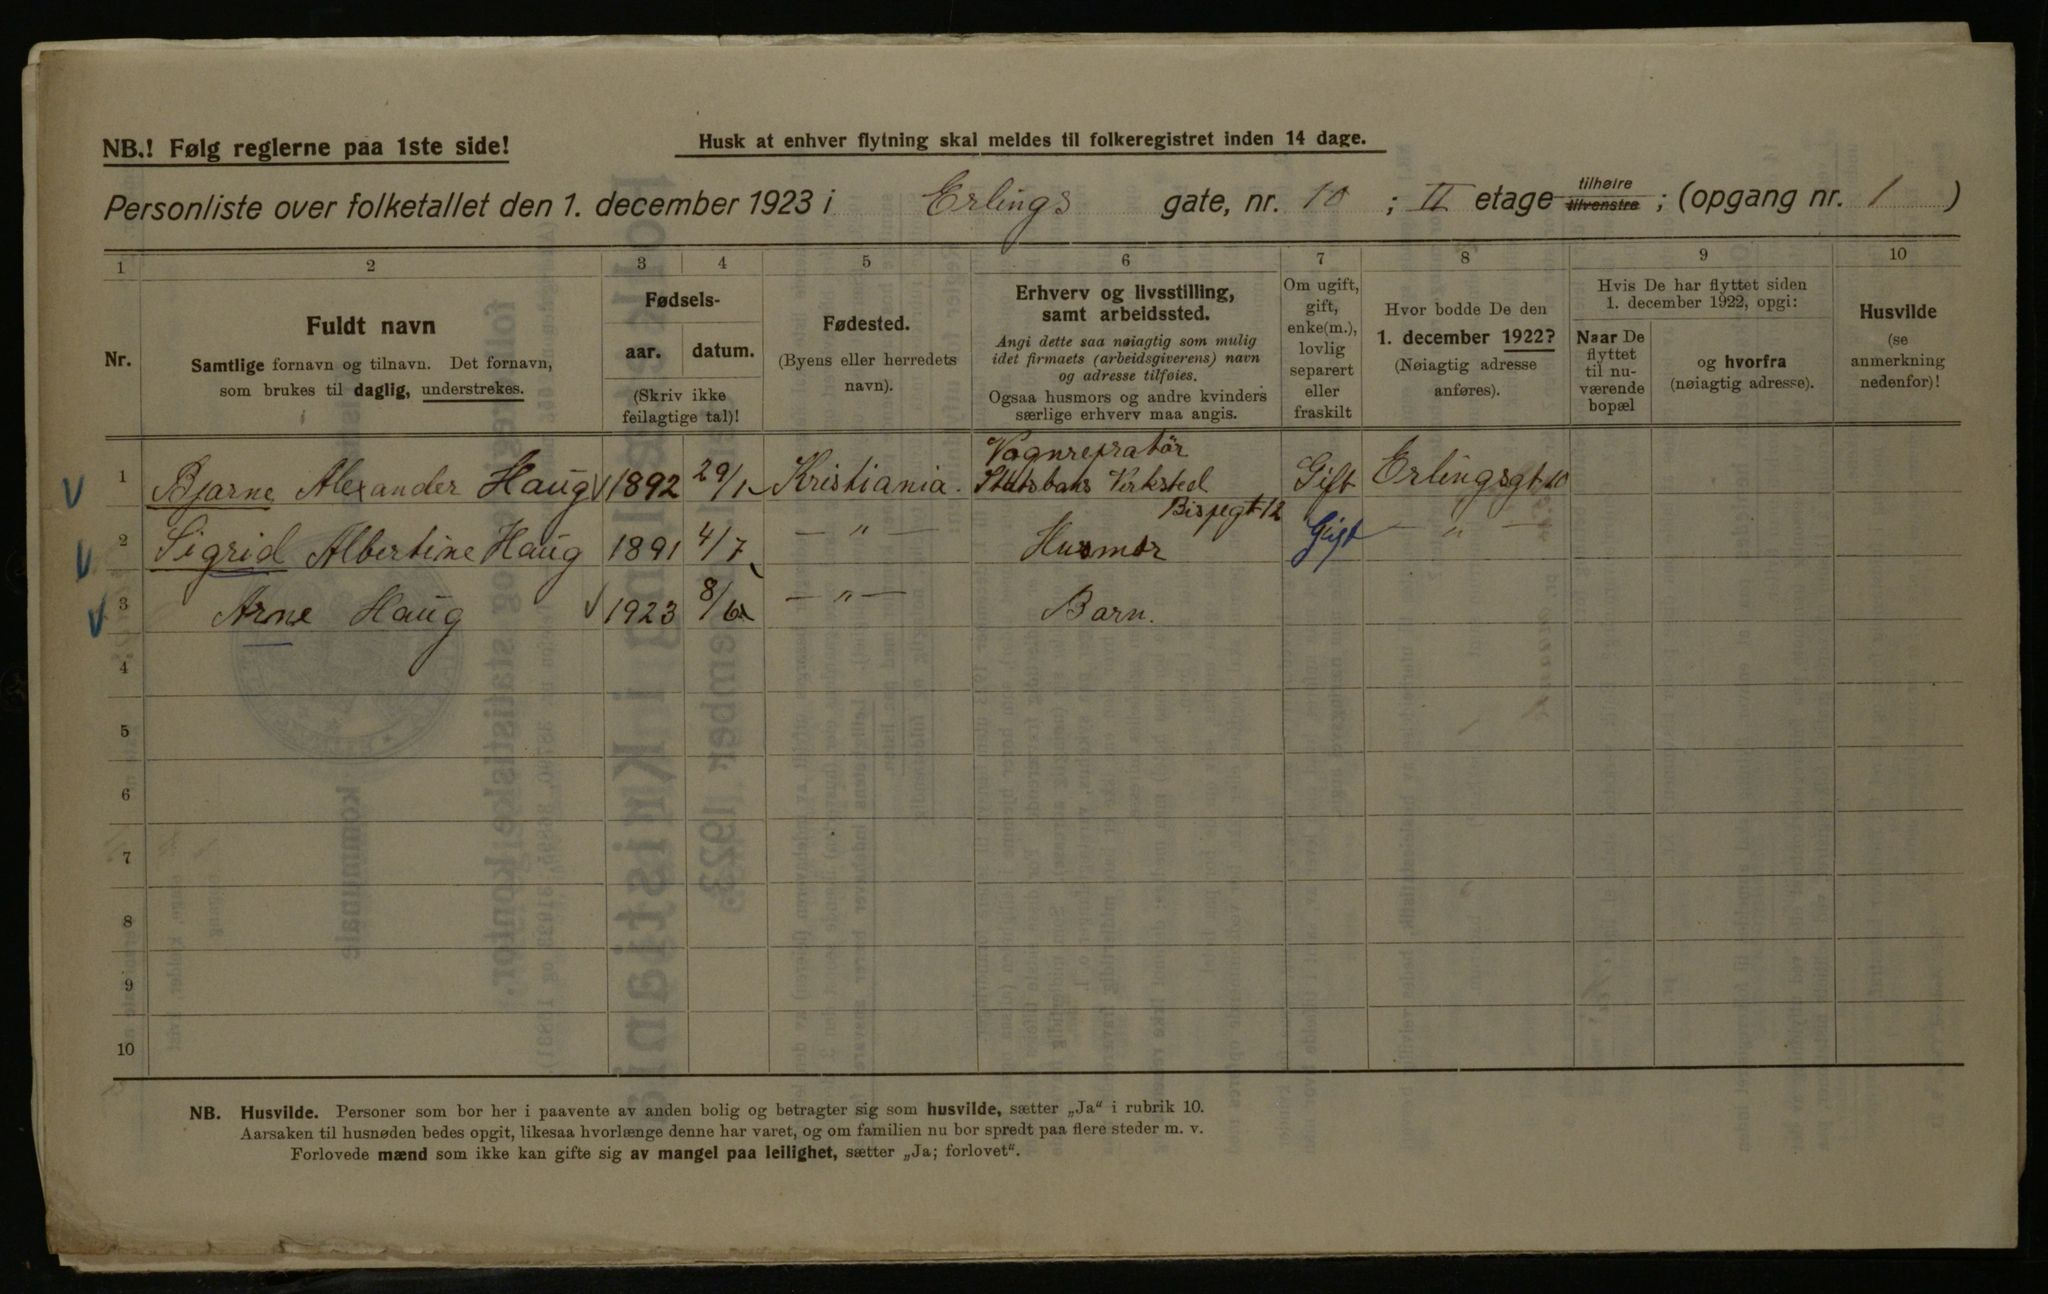 NB.! Følg reglerne paa 1ste side!
Husk at enhver flytning skal meldes til folkeregistret inden 14 dage.
Personliste over folketallet den 1. december 1923 i Erlings gate, nr. 10 ; II etage tilhøire tilvenstre ; (opgang nr. 1 )
1 2 3 4 5 6 7 8 9 10
Nr.
Fuldt navn
Samtlige fornavn og tilnavn. Det fornavn,
som brukes til daglig, understrekes.
Fødsels-
aar. datum.
(Skriv ikke
feilagtige tal)!
Fødested.
(Byens eller herredets
navn).
Erhverv og livsstilling,
samt arbeidssted.
Angi dette saa nøiagtig som mulig
idet firmaets (arbeidsgiverens) navn
og adresse tilføies.
Ogsaa husmors og andre kvinders
særlige erhverv maa angis.
Om ugift,
gift,
enke(m.),
lovlig
separert
eller
fraskilt
Hvor bodde De den
1. december 1922?
(Nøiagtig adresse
anføres).
Hvis De har flyttet siden
1. december 1922, opgi:
Naar De
flyttet
til nu-
værende
bopæl
og hvorfra
(nøiagtig adresse).
Husvilde
(se
anmerkning
nedenfor)!
Vognrepratör
1 Bjarne Alexander Haug 1892 29/1 Kristiania. Statsbans Verksted Gift Erlingsgt 10
Bispegt 12
2 Sigrid Albertine Haug 1891 4/7 — " — Husmor Gift — " —
3 Arne Haug 1923 8/6 — " — Barn.
4
5
6
7
8
9
10
NB. Husvilde. Personer som bor her i paavente av anden bolig og betragter sig som husvilde, sætter „Ja" i rubrik 10.
Aarsaken til husnøden bedes opgit, likesaa hvorlænge denne har varet, og om familien nu bor spredt paa flere steder m. v.
Forlovede mænd som ikke kan gifte sig av mangel paa leilighet, sætter „Ja; forlovet".